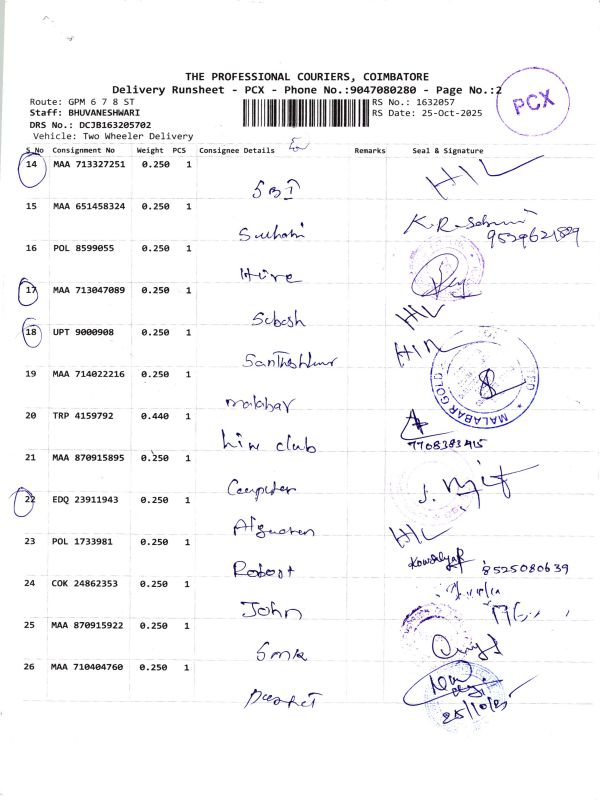 THE PROFESSIONAL COURIERS, COIMBATORE
Delivery Runsheet - PCX - Phone No.:9047080280 - Page No.:2
PCX
Route: GPM 6 7 8 ST RS No.: 1632057
Staff: BHUVANESHWARI RS Date: 25-Oct-2025
DRS No.: DCJB163205702
Vehicle: Two Wheeler Delivery
S.No Consignment No Weight PCS Consignee Details Remarks Seal & Signature
14 MAA 713327251 0.250 1
SBI
15 MAA 651458324 0.250 1
9529621889
16 POL 8599055 0.250 1
Hire
17 MAA 713047089 0.250 1
Subash
18 UPT 9000908 0.250 1
19 MAA 714022216 0.250 1
malabar
MALABAR GOLD
20 TRP 4159792 0.440 1
club
7708383415
21 MAA 870915895 0.250 1
Computer
22 EDQ 23911943 0.250 1
23 POL 1733981 0.250 1
Robost
8525080639
24 COK 24862353 0.250 1
John
25 MAA 870915922 0.250 1
26 MAA 710404760 0.250 1
25/10/25